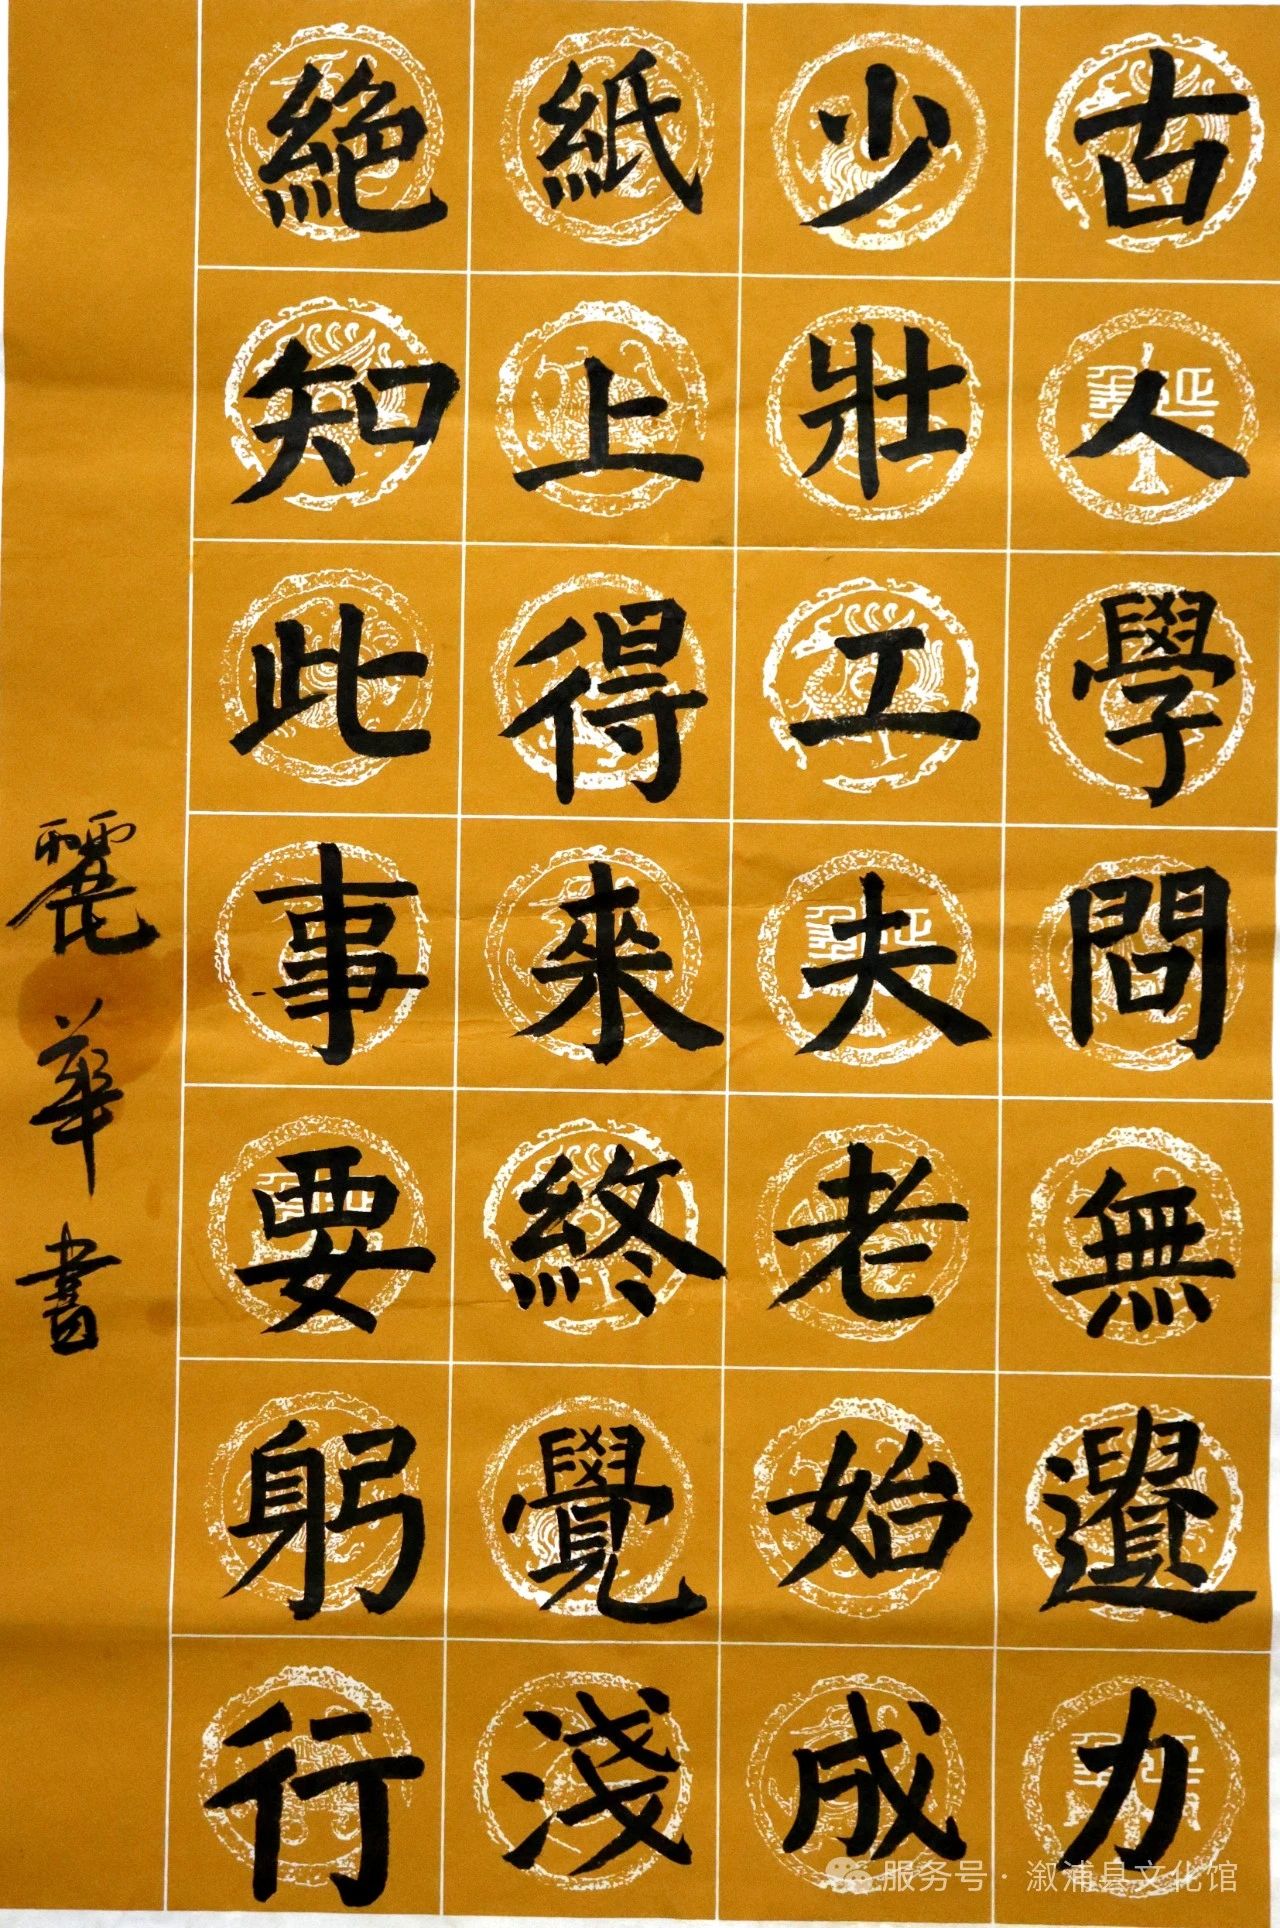 古人學問無遺力
少壯工夫老始成
紙上得來終覺淺
絕知此事要躬行
麗華書
服务号 · 溆浦县文化馆